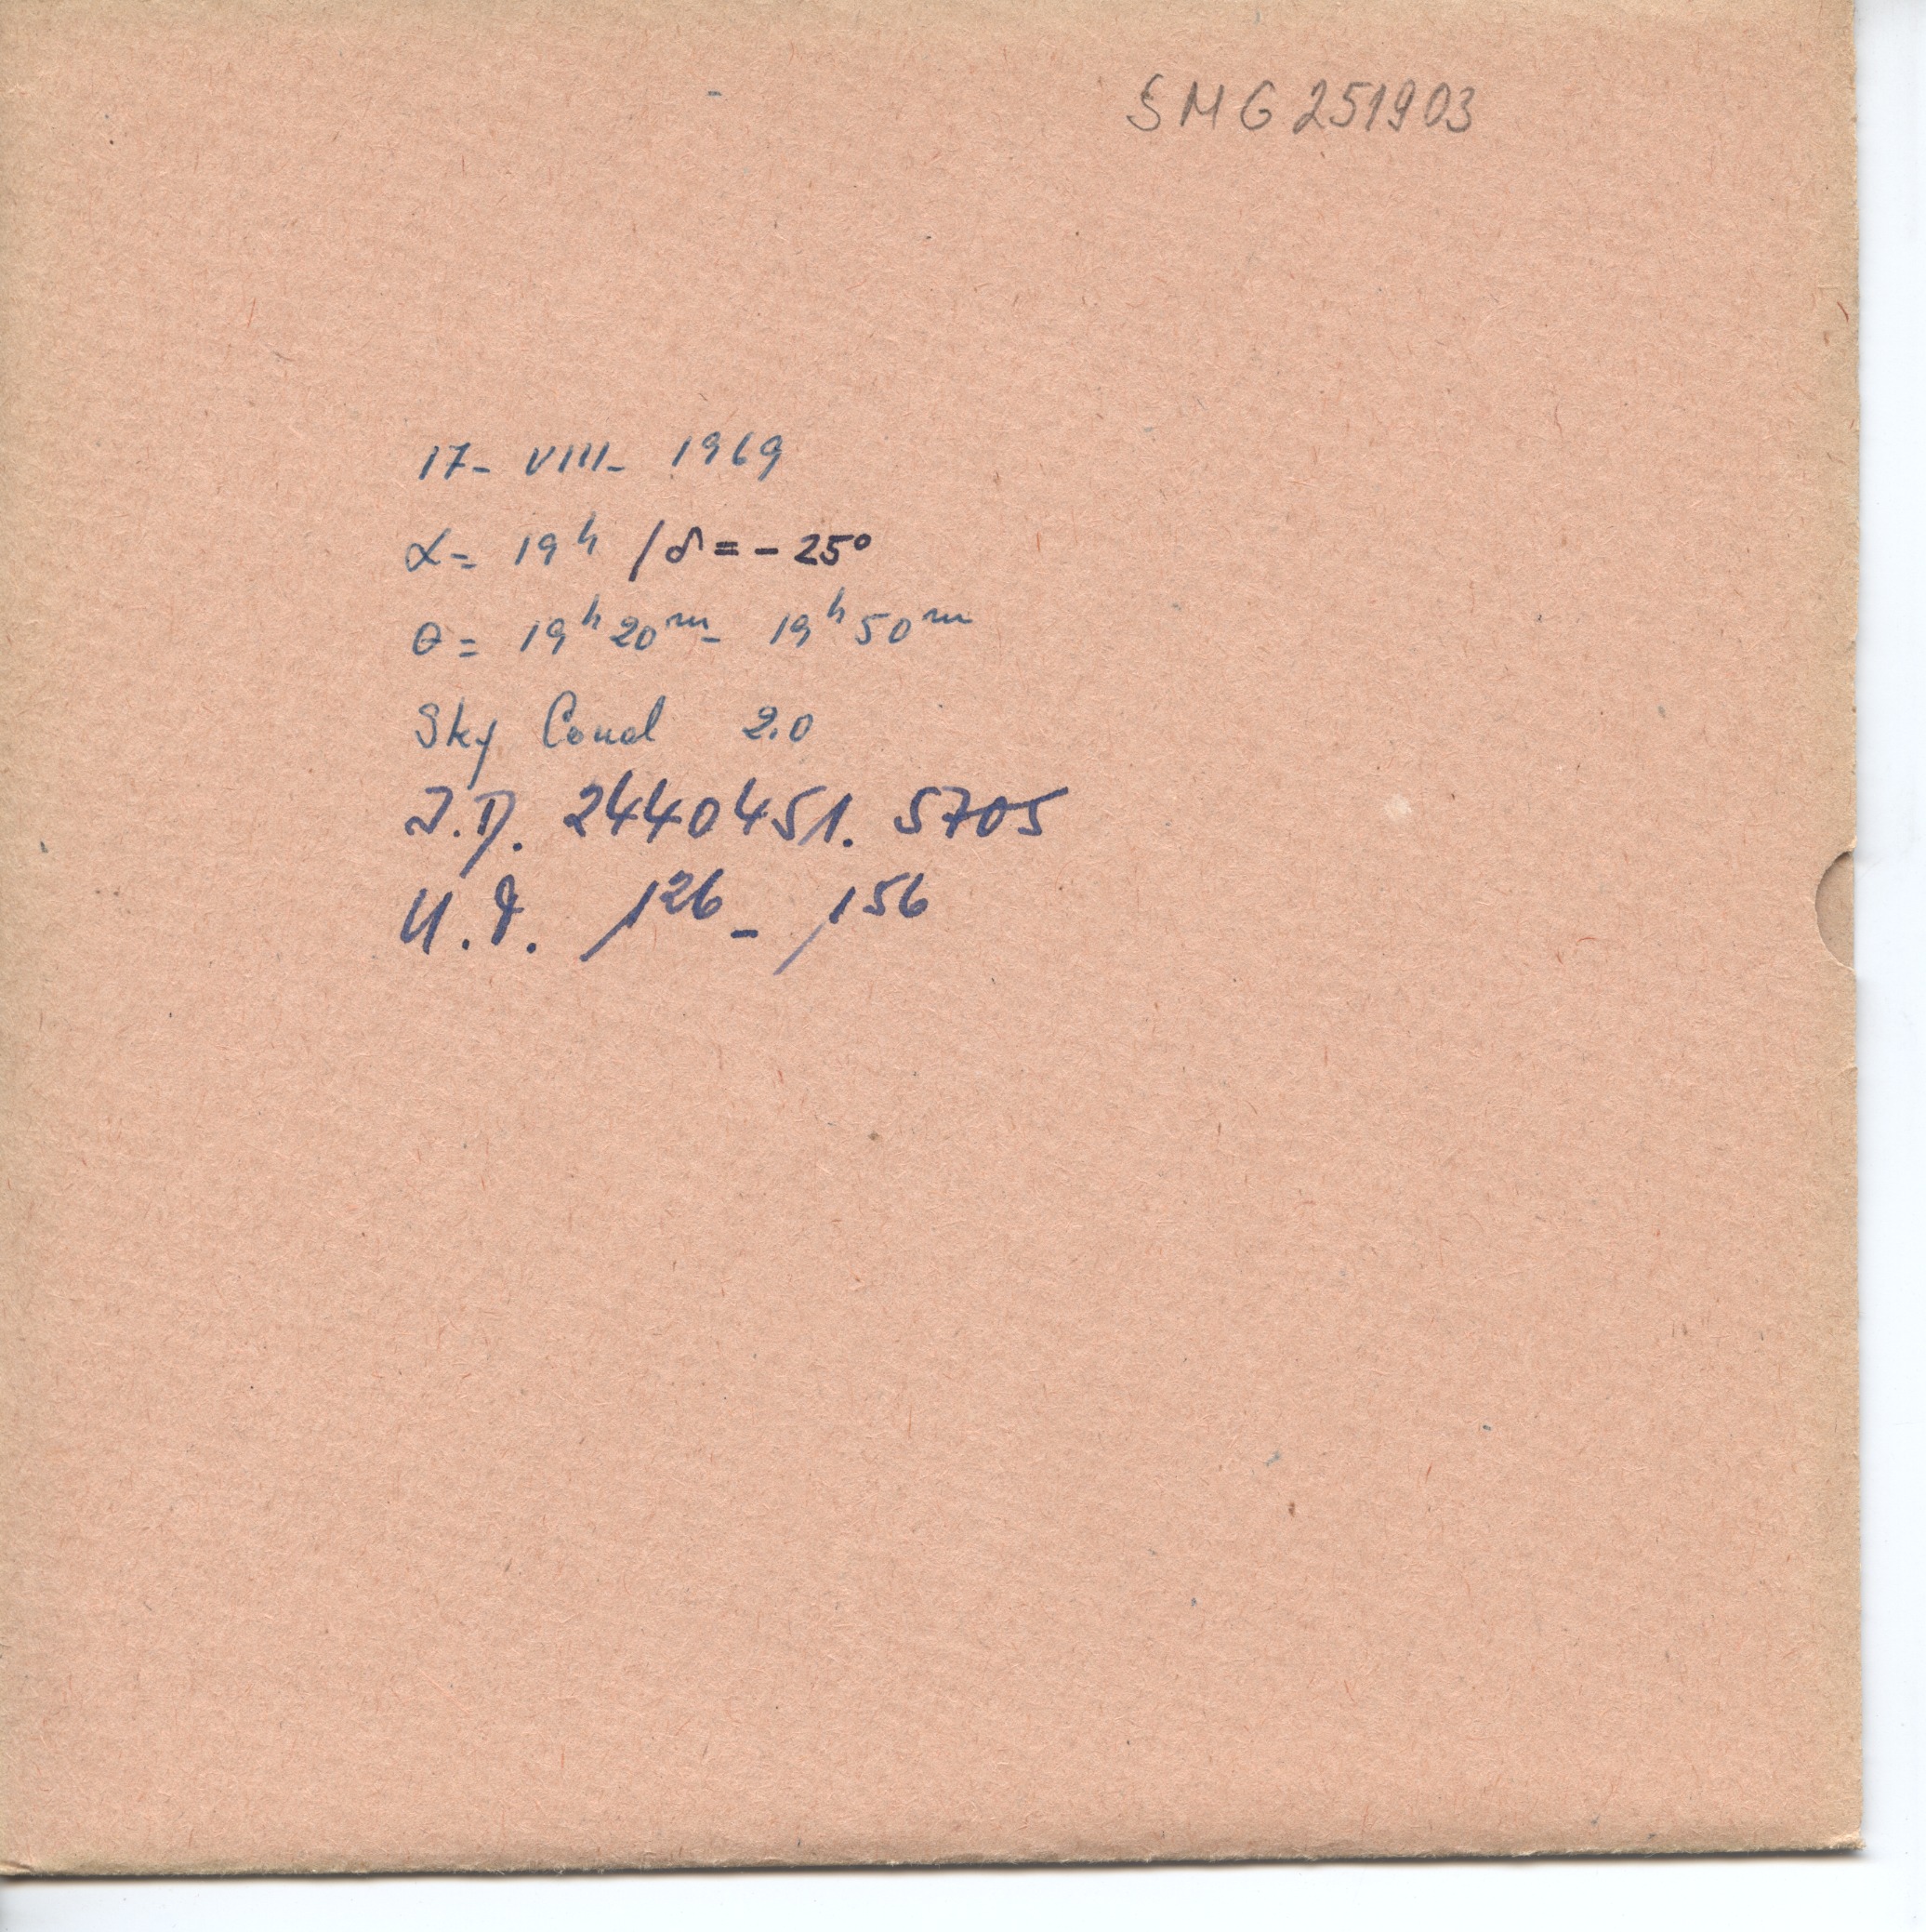 SMG 251903
17- VIII- 1969
α= 19ʰ /δ=-25°
θ= 19ʰ20ᵐ- 19ʰ50ᵐ
Sky Cond 2.0
J.D. 2440451.5705
U.T. 1²⁶ - 1⁵⁶